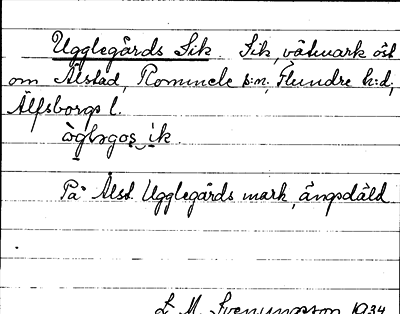 Ugglegårds Sik Sik, våtmark öst
om Ålstad, Rommele s:n, Flundre h:d,
Älfsborgs l.
På Ålst Ugglegårds mark, ängsdäld
L M Svenungsson 1934